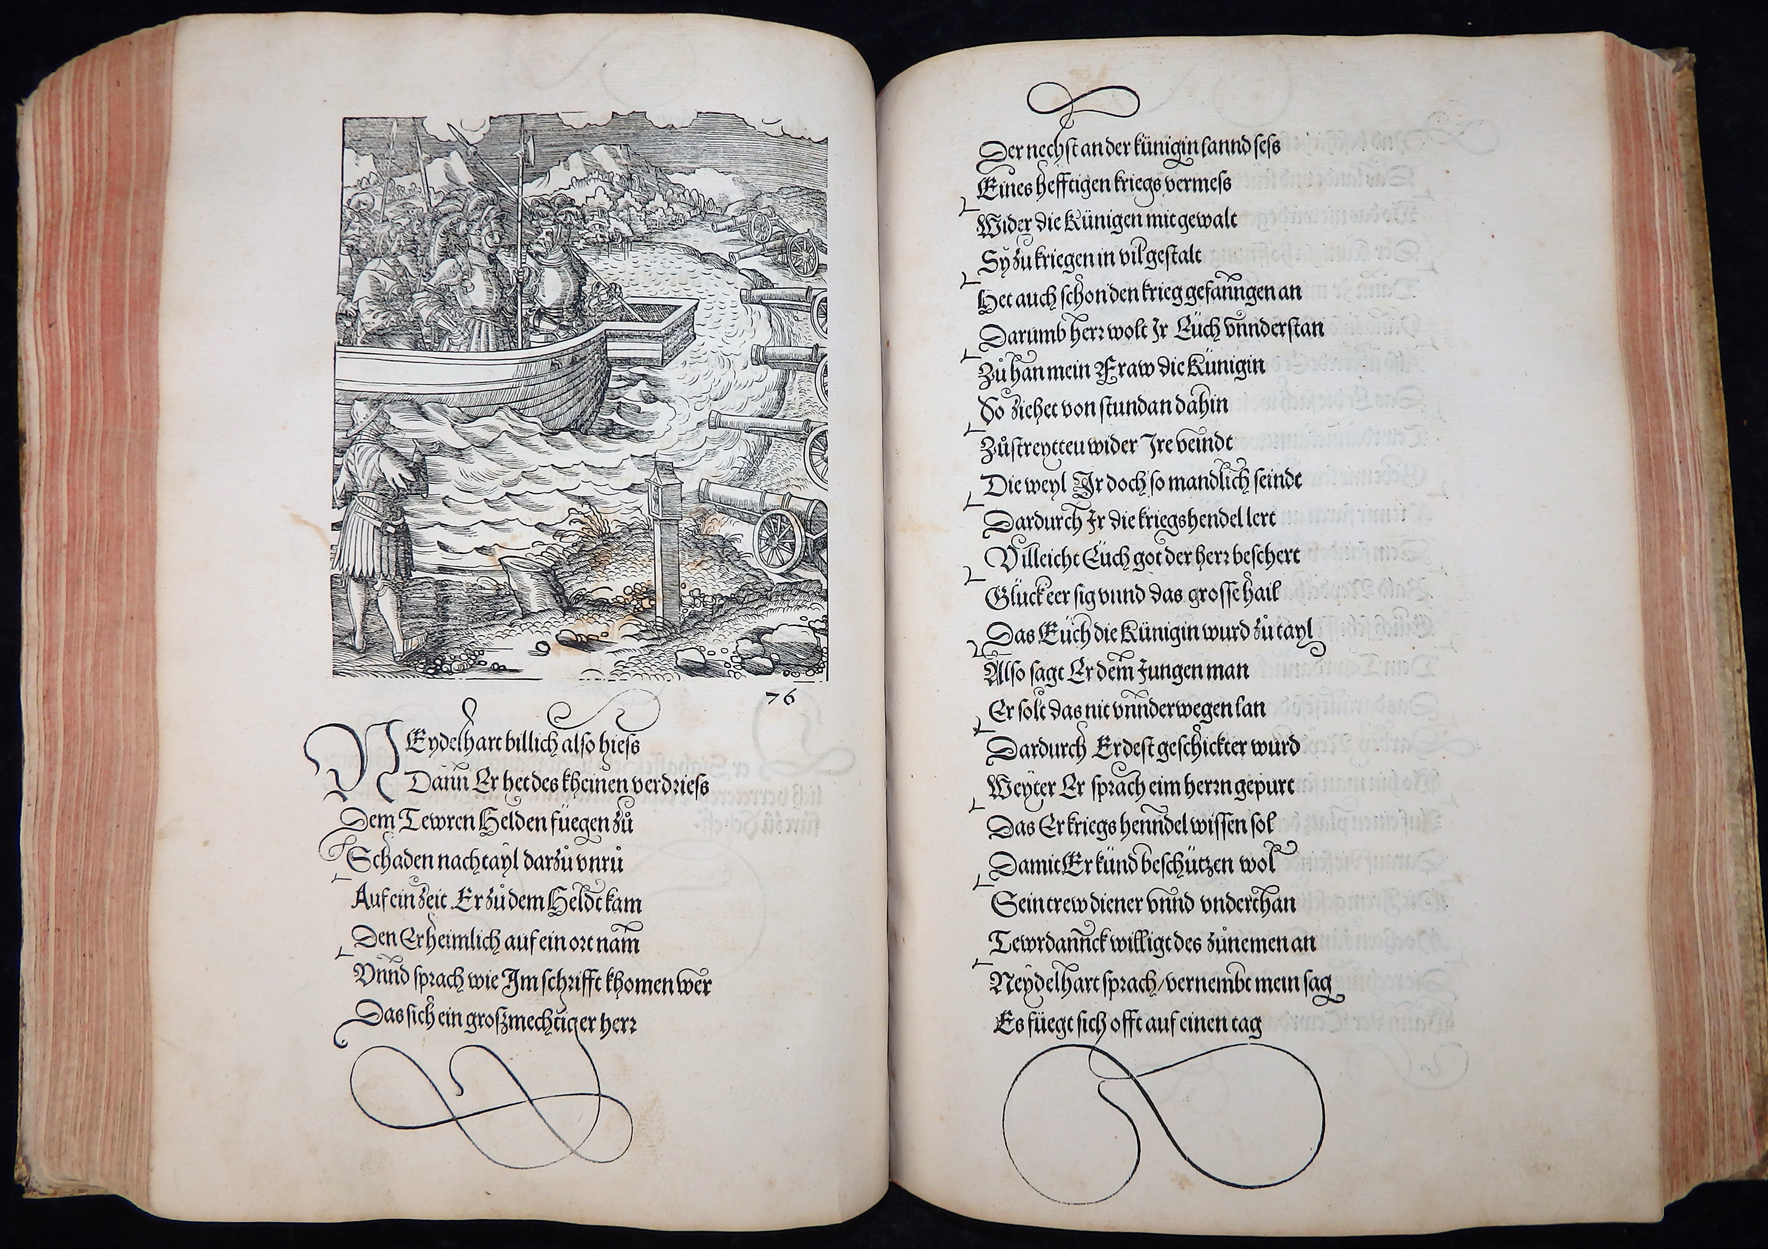 76
NEydelhart billich also hiess
Dann Er het des kheinen verdriess
Dem Tewren Helden füegen zů
Schaden nachtayl darzů vnrů
Auf ein zeit Er zů dem Heldt kam
Den Er heimlich auf ein ort nam
Vnnd sprach wie Im schrifft khomen wer
Das sich ein großmechtiger herr
Der nechst an der künigin lannd sess
Eines hefftigen kriegs vermess
Wider die Künigen mit gewalt
Sy zu kriegen in vil gestalt
Het auch schon den krieg gefanngen an
Darumb herr wolt Ir Euch vnnderstan
Zů han mein Fraw die Künigin
So ziehet von stundan dahin
Zů streytten wider Ire veindt
Die weyl Ir doch so mandlich seindt
Dardurch Ir die kriegs hendel lert
Villeicht Euch got der herr beschert
Glück eer sig vnnd das grosse hail
Das Euch die Künigin wurd zů tayl
Also sagt Er dem Jungen man
Er solt das nit vnnderwegen lan
Dardurch Er dest geschickter wurd
Weyter Er sprach eim herrn gepurt
Das Er kriegs henndel wissen sol
Damit Er künd beschützen wol
Sein trew diener vnnd vnderthan
Tewrdannck willigt des zůnemen an
Neydelhart sprach/vernembt mein sag
Es füegt sich offt auf einen tag